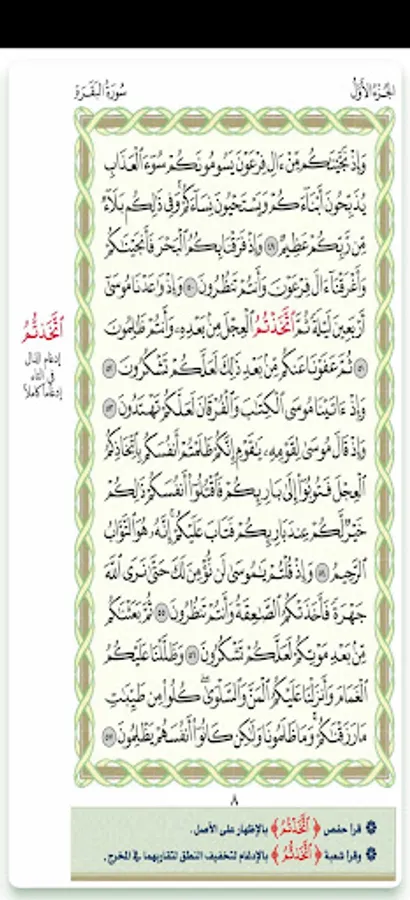 الجزء الأول
سورة البقرة
وَإِذْ نَجَّيْنَٰكُم مِّنْ ءَالِ فِرْعَوْنَ يَسُومُونَكُمْ سُوٓءَ ٱلْعَذَابِ
يُذَبِّحُونَ أَبْنَآءَكُمْ وَيَسْتَحْيُونَ نِسَآءَكُمْ وَفِى ذَٰلِكُم بَلَآءٌ
مِّن رَّبِّكُمْ عَظِيمٌ ٤٩ وَإِذْ فَرَقْنَا بِكُمُ ٱلْبَحْرَ فَأَنجَيْنَٰكُمْ
وَأَغْرَقْنَآ ءَالَ فِرْعَوْنَ وَأَنتُمْ تَنظُرُونَ ٥٠ وَإِذْ وَٰعَدْنَا مُوسَىٰٓ
أَرْبَعِينَ لَيْلَةً ثُمَّ ٱتَّخَذتُّمُ ٱلْعِجْلَ مِنۢ بَعْدِهِۦ وَأَنتُمْ ظَٰلِمُونَ
٥١ ثُمَّ عَفَوْنَا عَنكُم مِّنۢ بَعْدِ ذَٰلِكَ لَعَلَّكُمْ تَشْكُرُونَ ٥٢
وَإِذْ ءَاتَيْنَا مُوسَى ٱلْكِتَٰبَ وَٱلْفُرْقَانَ لَعَلَّكُمْ تَهْتَدُونَ ٥٣
وَإِذْ قَالَ مُوسَىٰ لِقَوْمِهِۦ يَٰقَوْمِ إِنَّكُمْ ظَلَمْتُمْ أَنفُسَكُم بِٱتِّخَاذِكُمُ
ٱلْعِجْلَ فَتُوبُوٓا۟ إِلَىٰ بَارِئِكُمْ فَٱقْتُلُوٓا۟ أَنفُسَكُمْ ذَٰلِكُمْ
خَيْرٌ لَّكُمْ عِندَ بَارِئِكُمْ فَتَابَ عَلَيْكُمْ إِنَّهُۥ هُوَ ٱلتَّوَّابُ
ٱلرَّحِيمُ ٥٤ وَإِذْ قُلْتُمْ يَٰمُوسَىٰ لَن نُّؤْمِنَ لَكَ حَتَّىٰ نَرَى ٱللَّهَ
جَهْرَةً فَأَخَذَتْكُمُ ٱلصَّٰعِقَةُ وَأَنتُمْ تَنظُرُونَ ٥٥ ثُمَّ بَعَثْنَٰكُم
مِّنۢ بَعْدِ مَوْتِكُمْ لَعَلَّكُمْ تَشْكُرُونَ ٥٦ وَظَلَّلْنَا عَلَيْكُمُ
ٱلْغَمَامَ وَأَنزَلْنَا عَلَيْكُمُ ٱلْمَنَّ وَٱلسَّلْوَىٰ كُلُوا۟ مِن طَيِّبَٰتِ
مَا رَزَقْنَٰكُمْ وَمَا ظَلَمُونَا وَلَٰكِن كَانُوٓا۟ أَنفُسَهُمْ يَظْلِمُونَ ٥٧
ٱتَّخَذتُّمُ
إدغام الذال
في التاء
إدغاماً كاملاً
٨
قرأ حفص ﴿ٱتَّخَذْتُمُ﴾ بالإظهار على الأصل.
وقرأ شعبة ﴿ٱتَّخَذتُّمُ﴾ بالإدغام لتخفيف النطق لتقاربهما في المخرج.